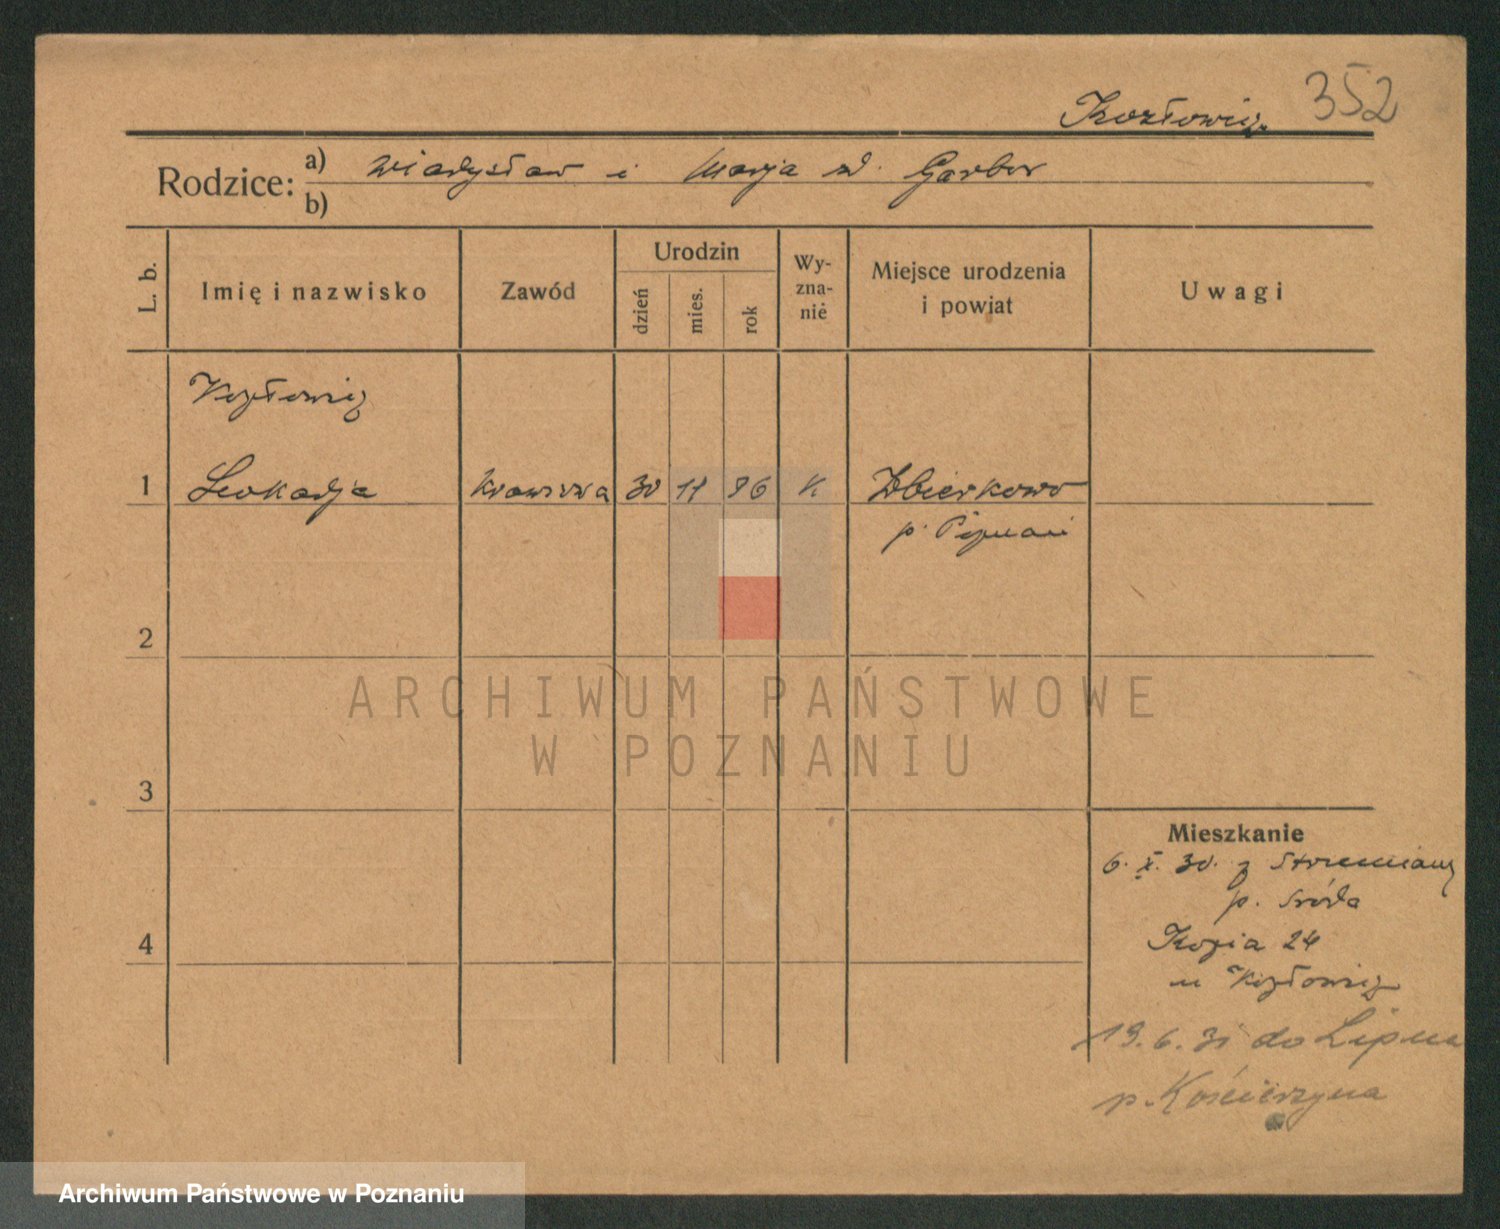 352
Kozłowicz
Rodzice: a) Władysław i Marja zd. Garber
b)
L. b.
Imię i nazwisko
Zawód
Urodzin
dzień
mies.
rok
Wy-
zna-
nie
Miejsce urodzenia
i powiat
Uwagi
Kozłowicz
1 Leokadja krawcowa 30 11 96 K Zbierkowo
p. Poznań
2
3
4
Mieszkanie
6. X. 30. z
p. Środa
Kozia 24
u Kozłowicz
19. 6. 31 do Lipna
p. Kościerzyna
ARCHIWUM PAŃSTWOWE
W POZNANIU
Archiwum Państwowe w Poznaniu